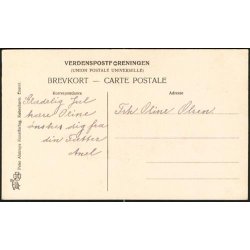 VERDENSPOSTFORENINGEN
(UNION POSTALE UNIVERSELLE)
BREVKORT — CARTE POSTALE
Korrespondance
Glædelig Jul
kære Oline
ønskes dig fra
din Fætter
Axel
Frk Oline Olsen.